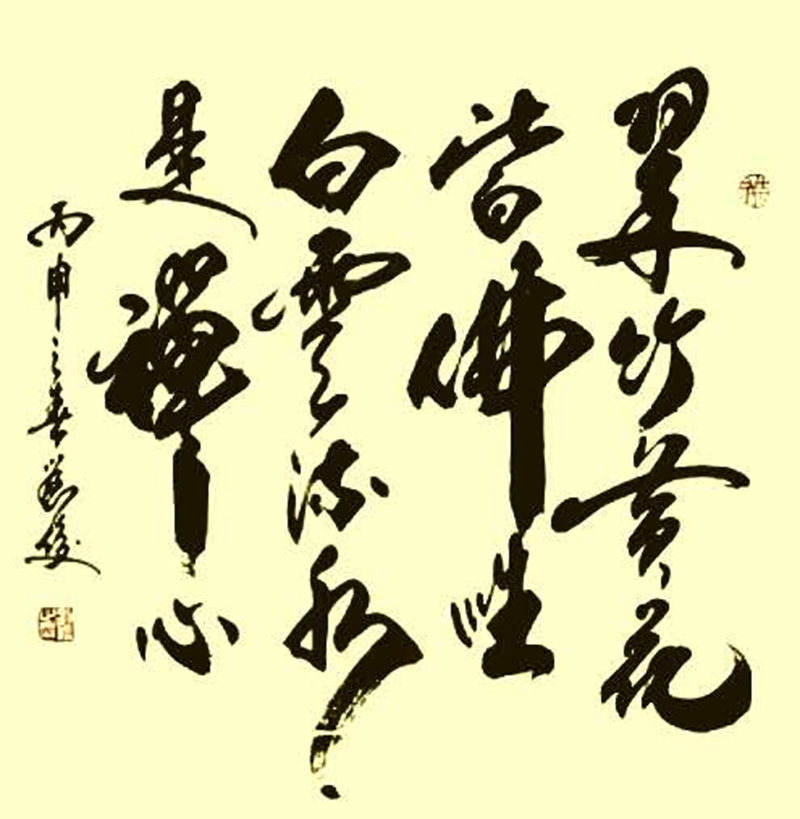 翠竹黄花
皆佛性
白雲流水
是禅心
丙申之春